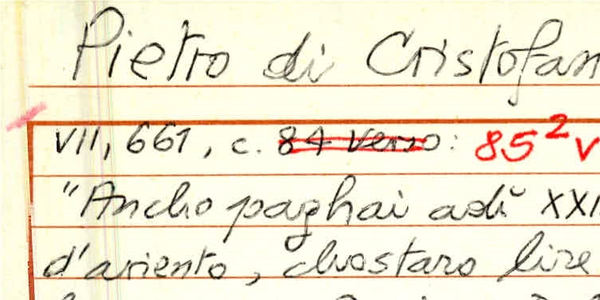 Pietro di Cristofan
VII, 661, c. 84 verso: 85² v
"Ancho paghai adì XXI
d'ariento, chostaro lire